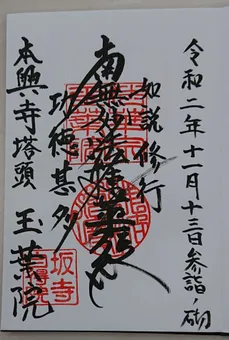 令和二年十一月十三日参詣ノ砌
如説修行
南無妙法蓮華経
功徳甚多
本興寺塔頭 玉葉院